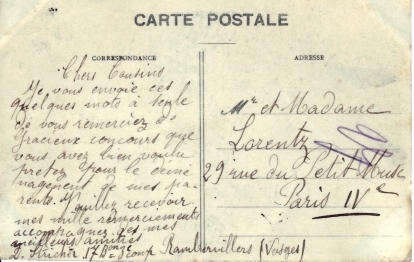 CARTE POSTALE
CORRESPONDANCE
ADRESSE
Chers Cousins
Je vous envoie ces
quelques mots à seule
de vous remerciez du
Gracieux concours que
vous avez bien voulu
pretez pour le demé
nagement de mes pa
rents. Veuillez recevoir
mes mille remerciements
accompagnez des mes
meilleurs amitiés
17e Bon Rambervillers (Vosges)
Mr et Madame
Lorentz
29 rue du Petit Musc
Paris IVe